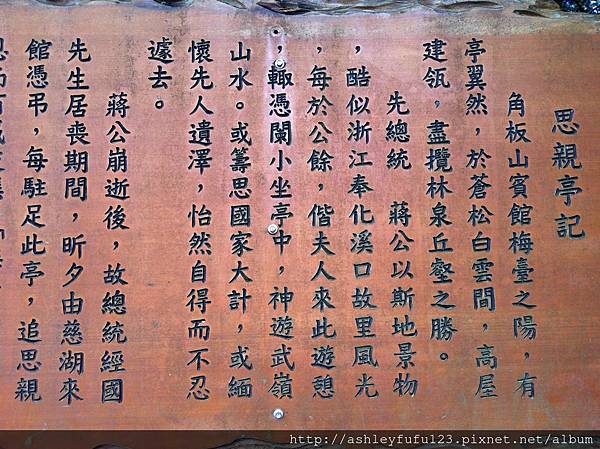 思親亭記
角板山賓館梅臺之陽，有
亭翼然，於蒼松白雲間，高屋
建瓴，盡攬林泉丘壑之勝。
先總統　蔣公以斯地景物
，酷似浙江奉化溪口故里風光
，每於公餘，偕夫人來此遊憩
，輒憑闌小坐亭中，神遊武嶺
山水。或籌思國家大計，或緬
懷先人遺澤，怡然自得而不忍
遽去。
蔣公崩逝後，故總統經國
先生居喪期間，昕夕由慈湖來
館憑弔，每駐足此亭，追思親
http://ashleyfufu123.pixnet.net/album